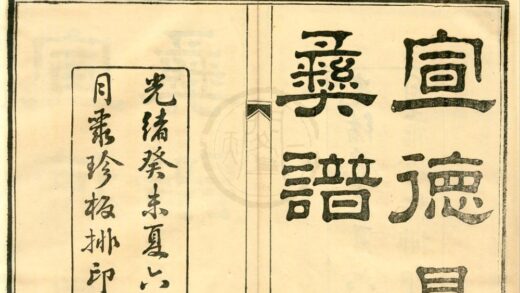 宣德
彝譜
光緒癸未夏六
月聚珍板排印